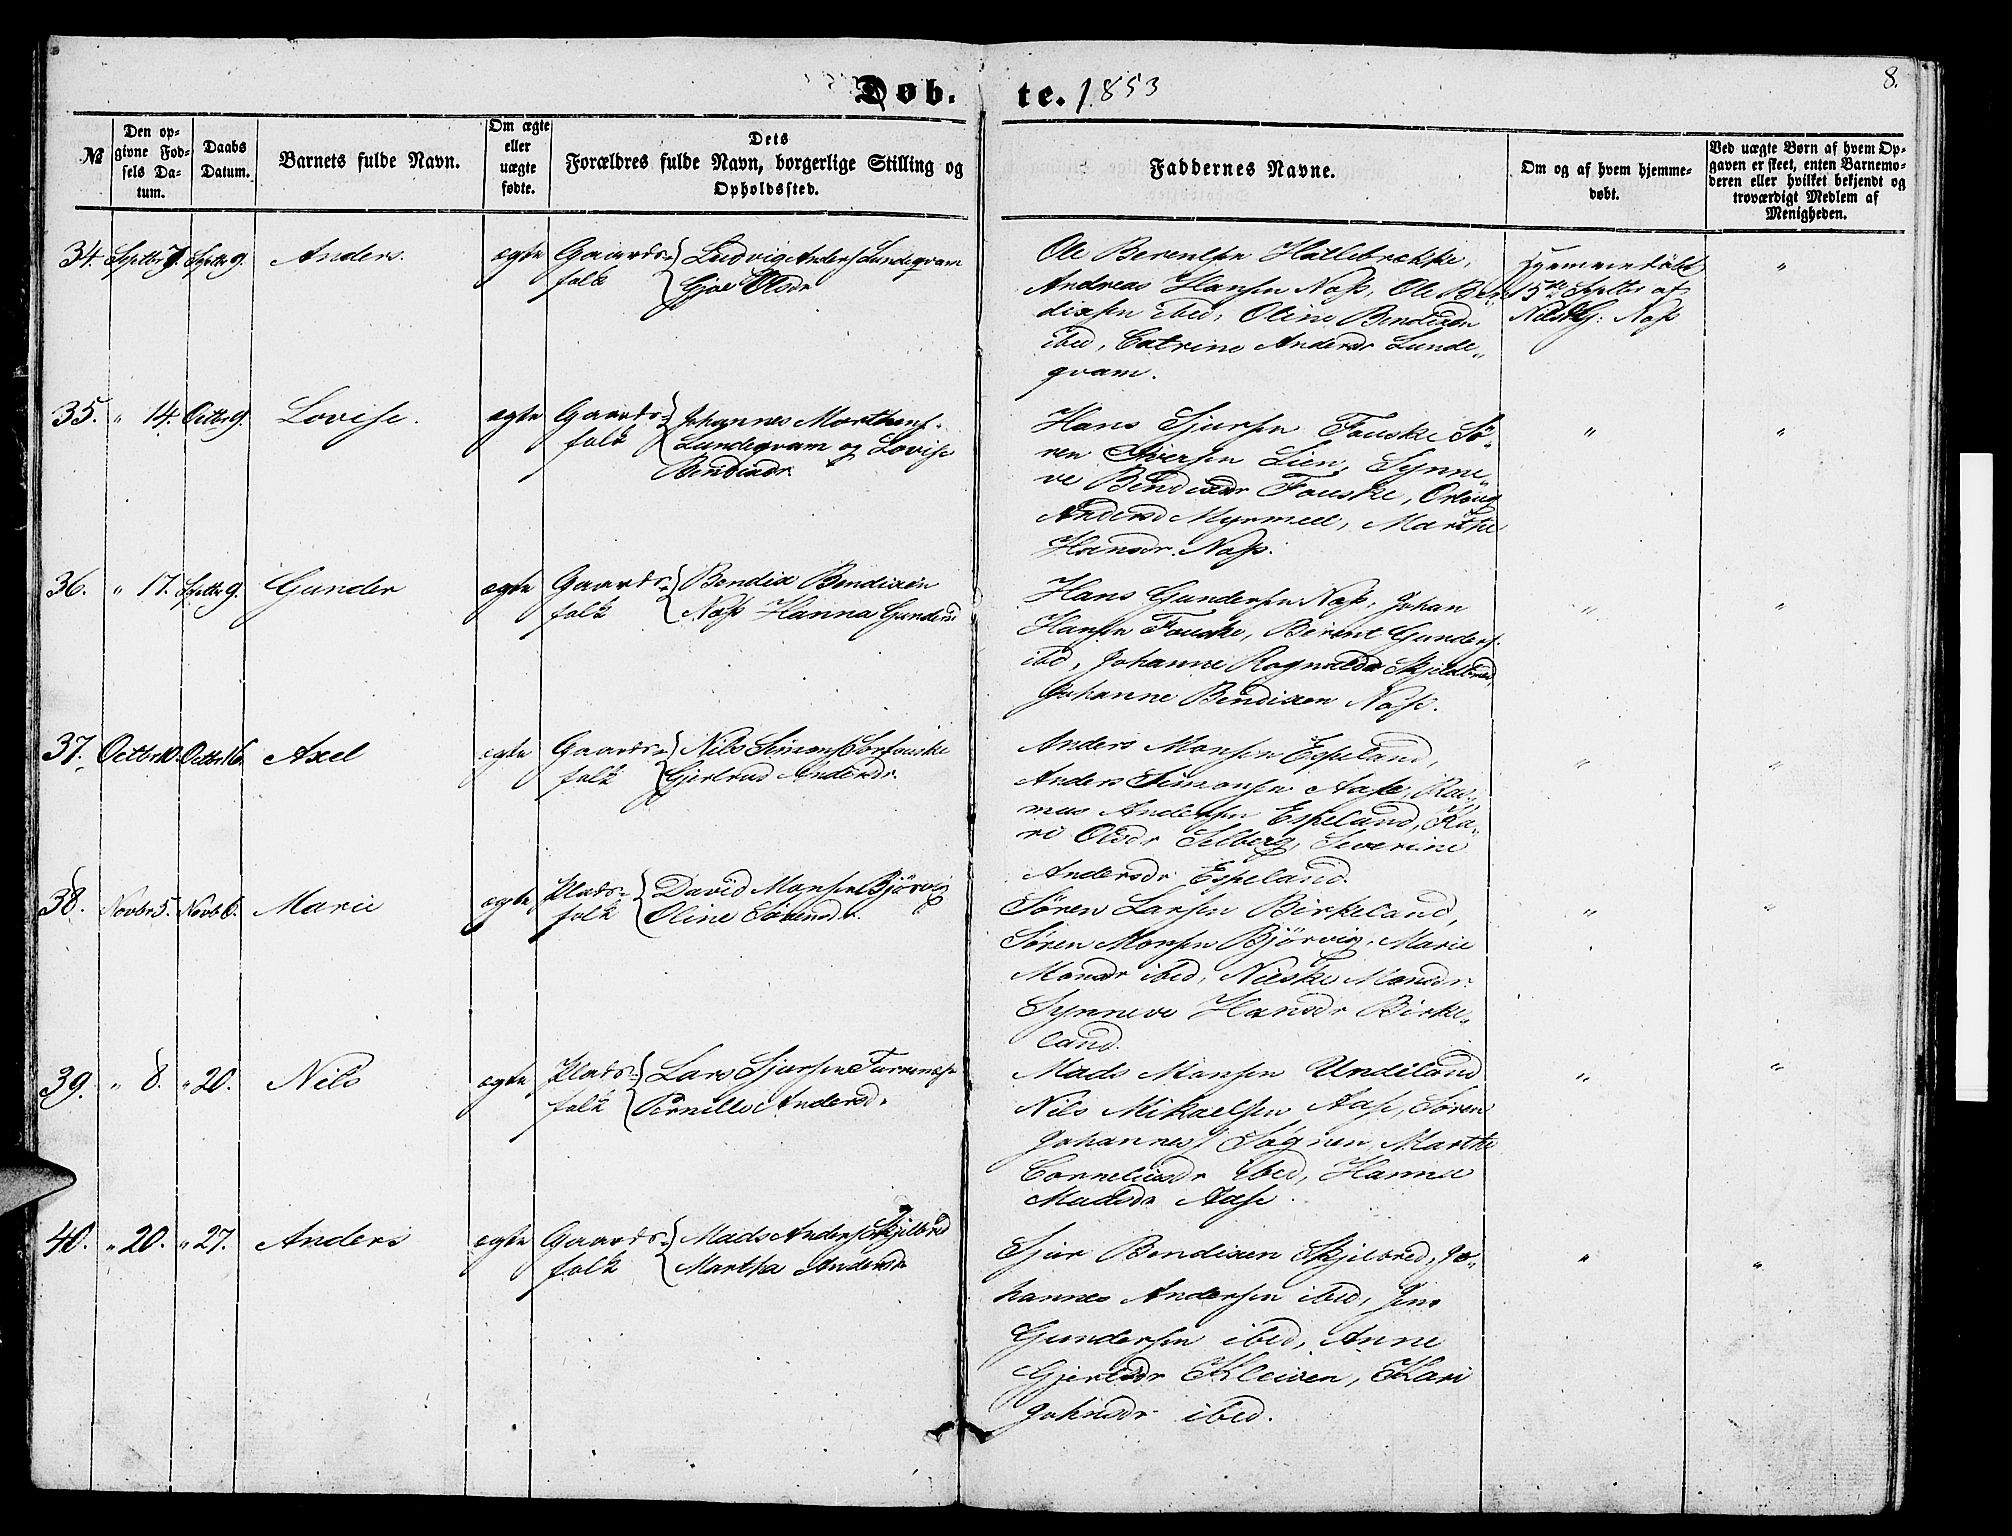 Døb-te. 1853
8.
№
Den opgivne Fødsels Datum.
Daabs Datum.
Barnets fulde Navn.
Om ægte eller uægte fødte.
Dets Forældres fulde Navn, borgerlige Stilling og Opholdssted.
Faddernes Navne.
Om og af hvem hjemmedøbt.
Ved uægte Børn af hvem Opgaven er skeet, enten Barnemoderen eller hvilket bekjendt og troværdigt Medlem af Menigheden.
34. Septbr 7. Septbr 9. Anders ægte Gaards-folk Ludvig Anders Lundeqvam
Gjoe Olsdr
Ole Berentsen Hillebrække,
Andreas Hansen Næss, Ole Ben
dixsen ibid, Oline Bendixdr
ibid, Catrine Andersdr Lunde„
qvam.
Hjemmedøbt
15de Septbr af
Nils Næss
"
35. " 14. Octbr 9. Lovise. ægte Gaards-folk Johannes Marthens.
Lundeqvam og Lovise
Bendixdr.
Hans Sjursen Fouske Sö„
ren Iversen Lien, Synne„
ve Bendixdr Fouske,
Andersd Myrmell, Marthe
Hansdr. Næss.
" "
36. " 17. Septbr 9. Gunder ægte Gaards-folk Bendix Bendixen
Næss Hanna Gundersd
Hans Gundersen Næss, Johan
Hansen Fouske, Berent Gunders.
ibd, Johanne Rognaldsdr Skjelbred,
Johanne Bendixen Næss.
" "
37. Octbr 10. Octbr 16. Axel ægte Gaards-folk Nils Simons Sörfouske
Gjertrud Andersdr.
Anders Monsen Espeland,
Anders Simonsen Aase, Ras„
mus Andersen Espeland, Ka„
ri Olsdr Selberg, Severine
Andersdr Espeland.
" "
38. Novbr 5. Novb 6. Marie ægte Plads-folk David Monsen Björvig
Oline Sörensdr.
Søren Larsen Birkeland,
Søren Monsen Björvig, Marie
Monsdr ibid, Nieske Monsdr.
Synneve Hansdr Birke„
land.
" "
39. " 8. " 20. Nils ægte Plads-folk Lars Sjursen
Pernille Andersd.
Mads Monsen Undeland
Nils Mikaelsen Aase, Søren
Johannes Søgnen, Marthe
Corneliusdr ibid, Hanna
Madsdr Aase.
" "
40. " 20. " 27. Anders ægte Gaards-folk Mads Anders Skjelbred
Martha Andersdr
Sjur Bendixen Skjelbred, Jo„
hannes Andersen ibid, Jens
Gundersen ibid, Anne
Gjertsdr Kleiven, Kari
Johnsdr ibid.
" "